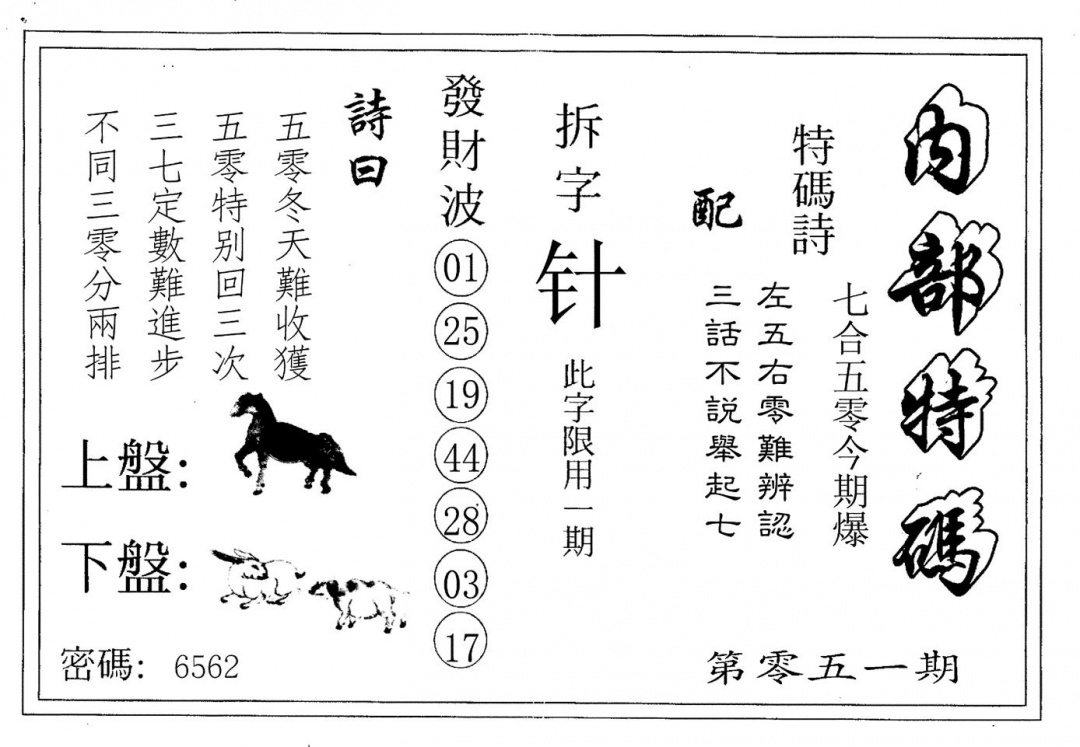 內部特碼
特碼詩
七合五零今期爆
配
左五右零難辨認
三話不説舉起七
第零五一期
拆字
针
此字限用一期
發財波
01
25
19
44
28
03
17
詩曰
五零冬天難收獲
五零特别回三次
三七定數難進步
不同三零分兩排
上盤：
下盤：
密碼： 6562